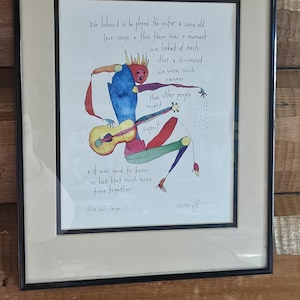 We listened as he played the guitar & sang old
love songs & then there was a moment
we looked at each
other & discovered
we were much
nearer
than other people
might
expect
& it was good to know
we had that much more
time together.